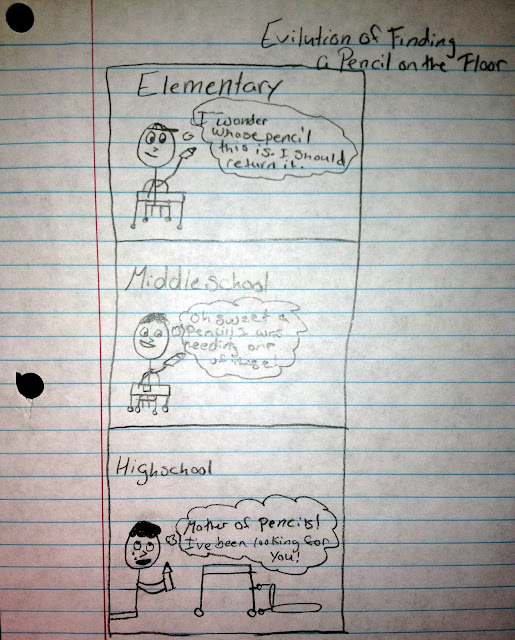 Evilution of Finding
a Pencil on the Floor
Elementary
I wonder
whose pencil
this is. I should
return it.
Middleschool
Oh sweet a
pencil! I was
needing one
of these!
Highschool
Mother of Pencils!
I've been looking for
you!